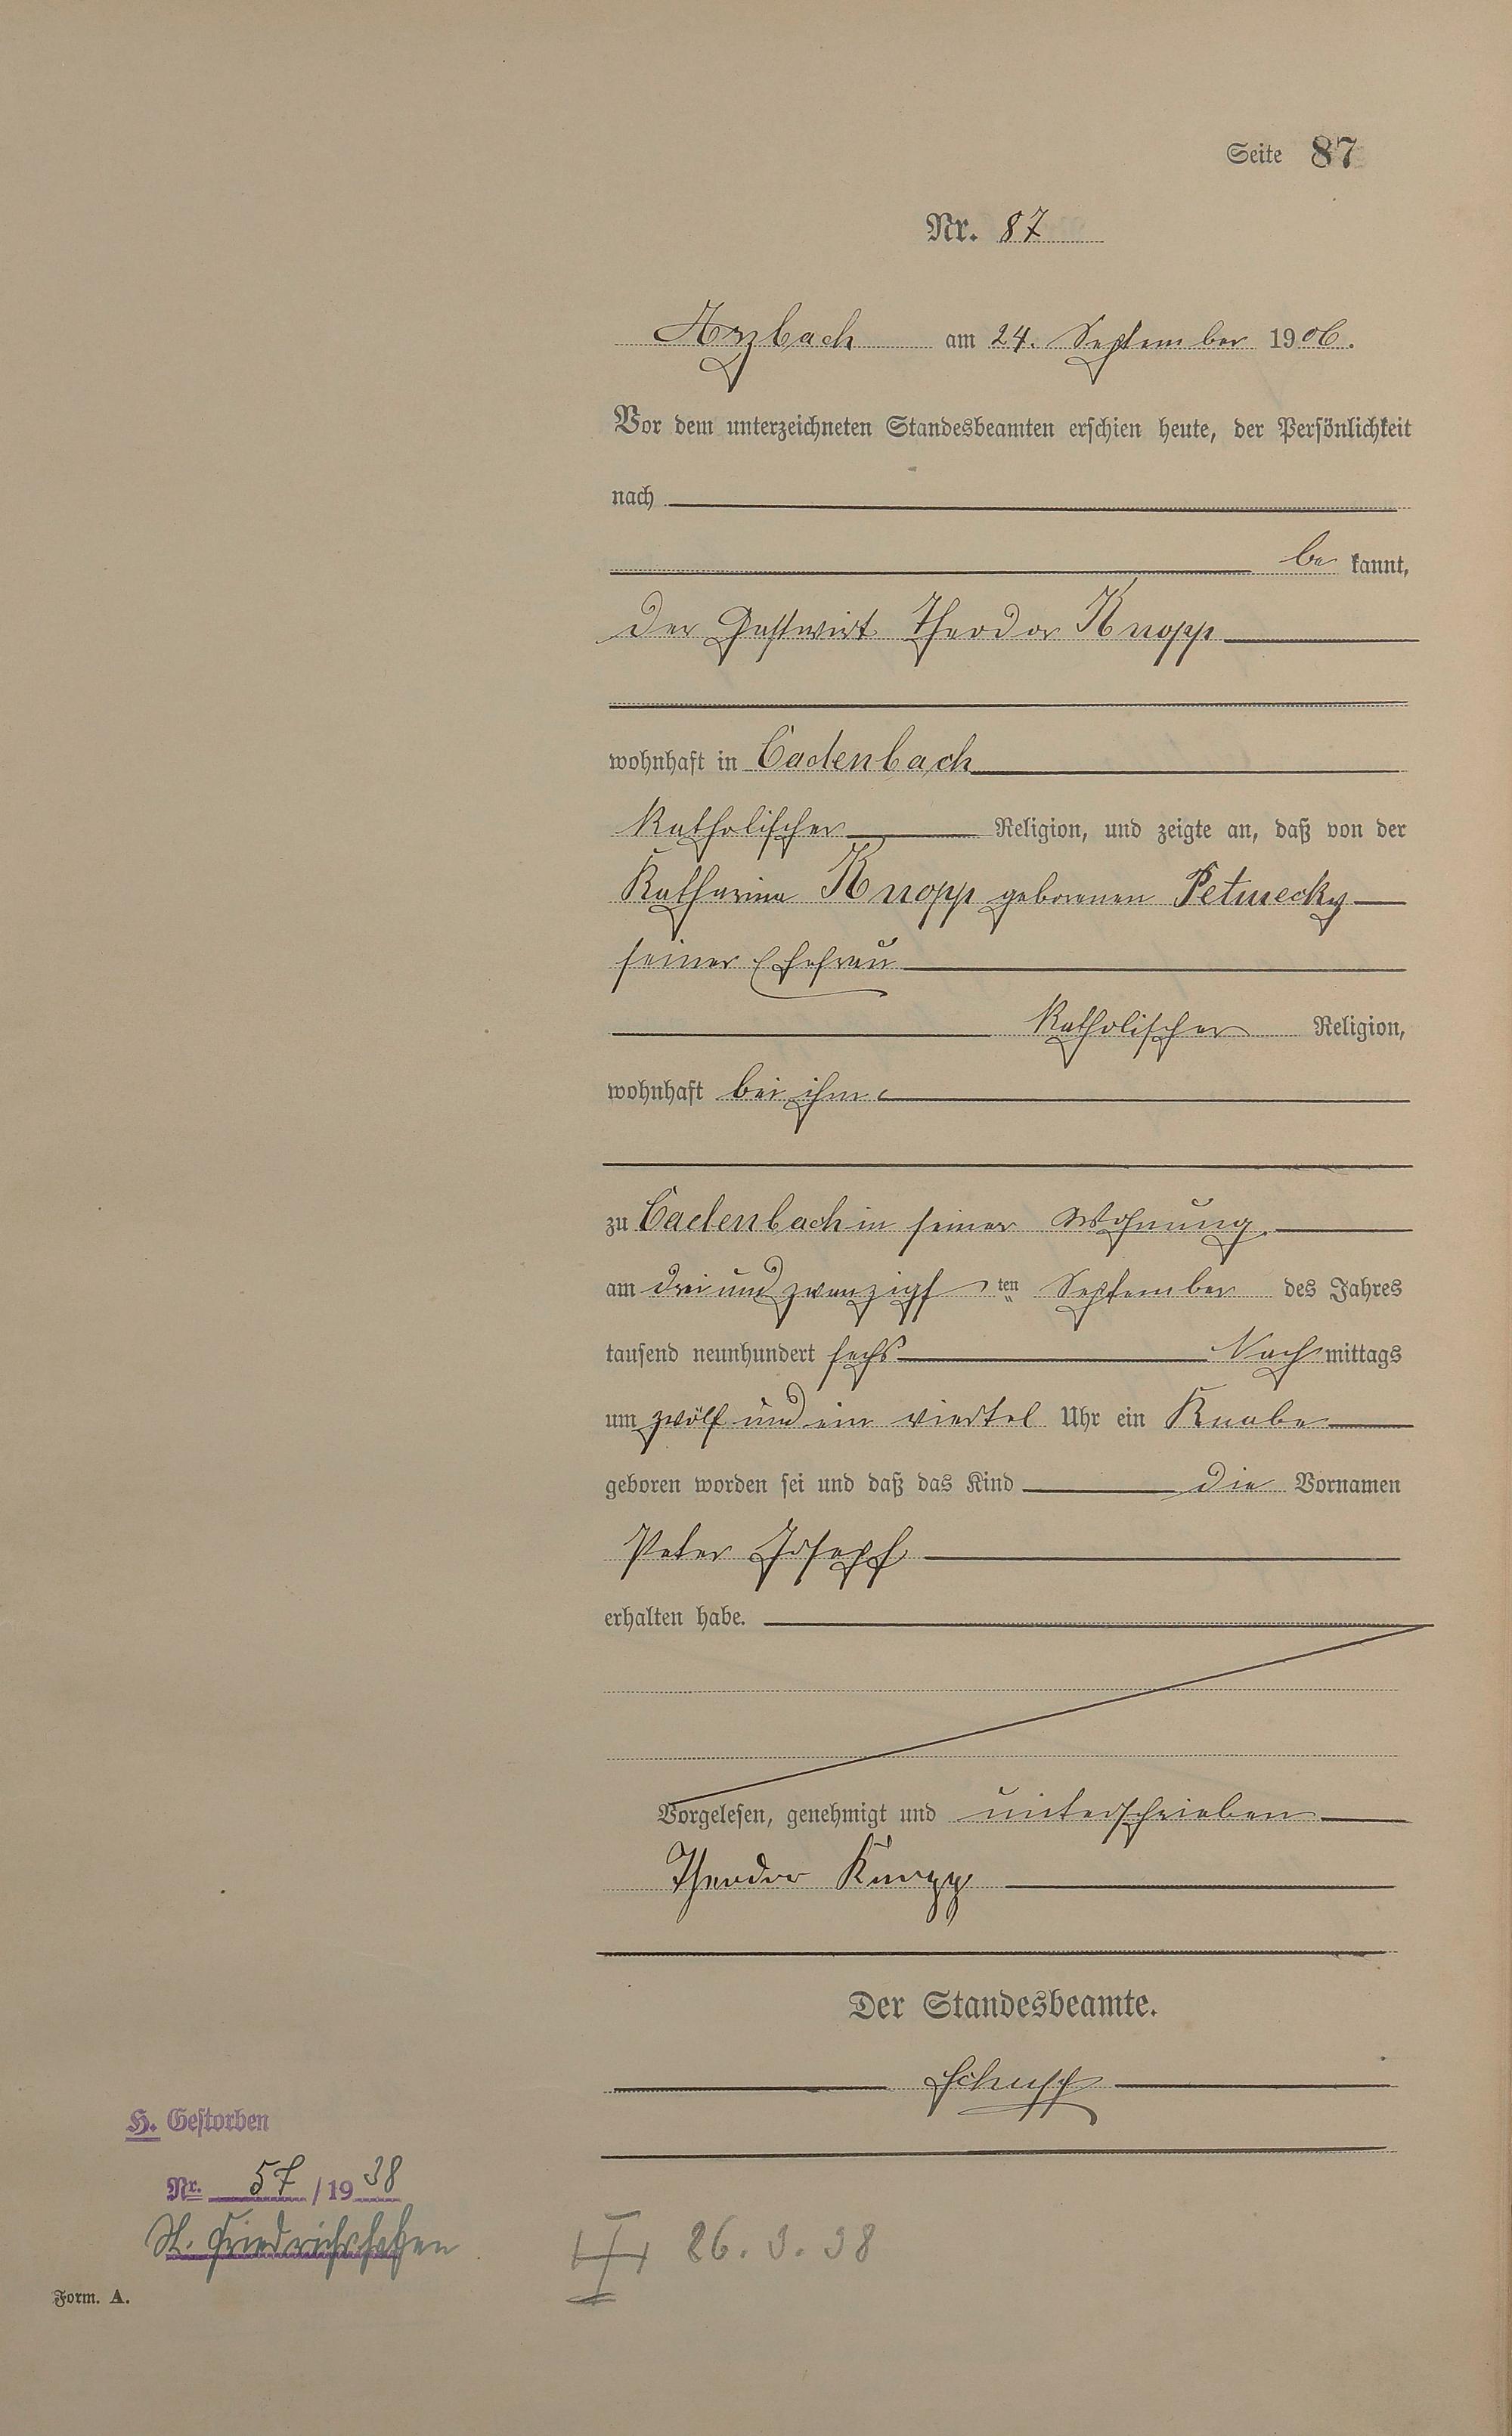 Seite 87
Nr. 87
Arzbach am 24. September 1906.
Vor dem unterzeichneten Standesbeamten erschien heute, der Persönlichkeit
nach
be kannt,
der Gastwirt Theodor Knopp
wohnhaft in Cadenbach
katholischer Religion, und zeigte an, daß von der
Katharina Knopp geborenen Petmecky
seiner Ehefrau
katholischer Religion,
wohnhaft bei ihm
zu Cadenbach in seiner Wohnung
am drei und zwanzigsten September des Jahres
tausend neunhundert sechs Nachmittags
um zwölf und ein viertel Uhr ein Knabe
geboren worden sei und daß das Kind die Vornamen
Peter Joseph
erhalten habe.
Vorgelesen, genehmigt und unterschrieben
Theodor Knopp
Der Standesbeamte.
H. Gestorben
Nr. 57/1938
St. Friedrichshafen
26. 3. 38
Form. A.